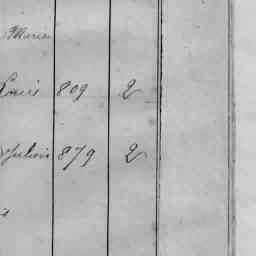 Marie
Louis 809 2
Julien 879 2